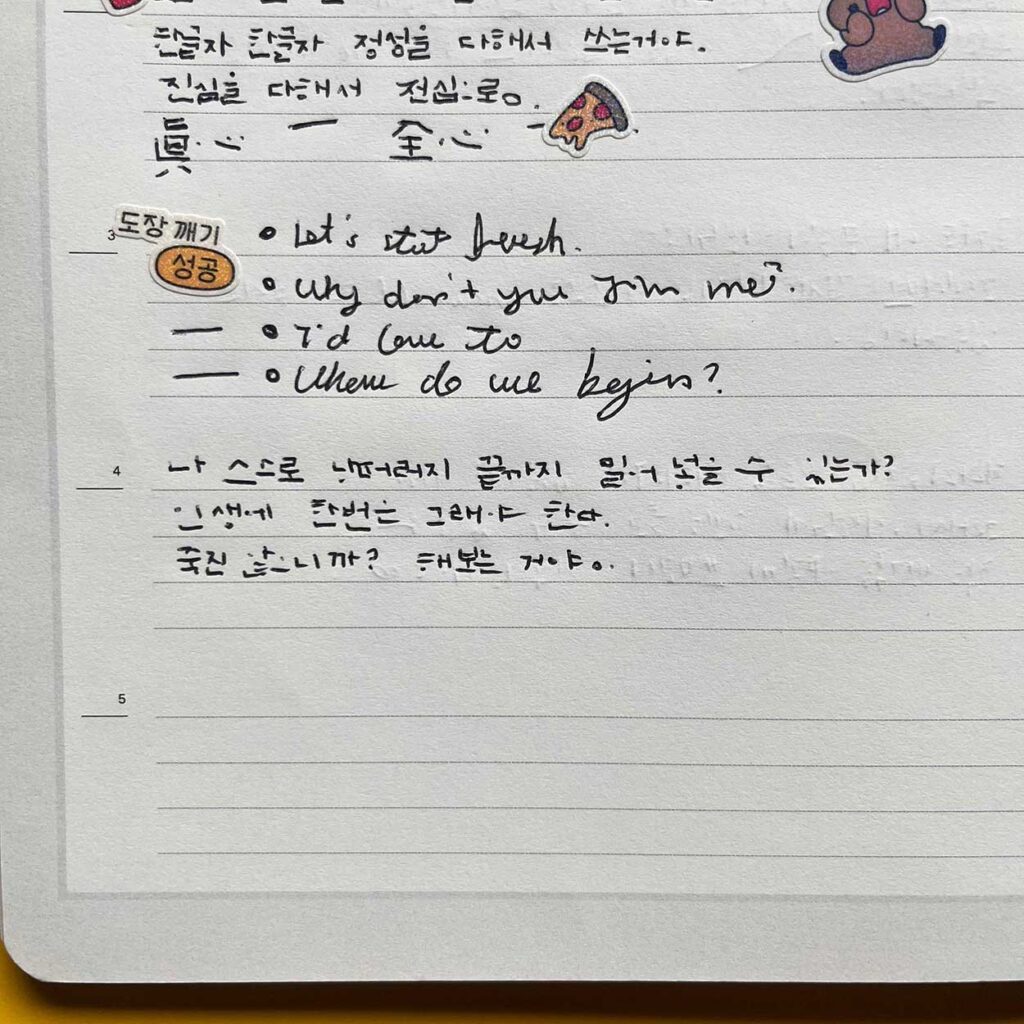 한글자 한글자 정성을 다해서 쓰는거야.
진심을 다해서 전심으로.
眞心 一 全心
3
도장 깨기
성공
• Let's start fresh.
• Why don't you join me?
— • I'd love to
— • Where do we begin?
4
나 스스로 낭떠러지 끝까지 밀어 넣을 수 있는가?
인생에 한번은 그래야 한다.
죽진 않으니까? 해보는 거야.
5